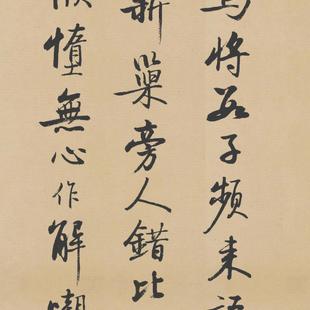 烏將數子頻來語
新巢旁人錯比
惰無心作解嘲